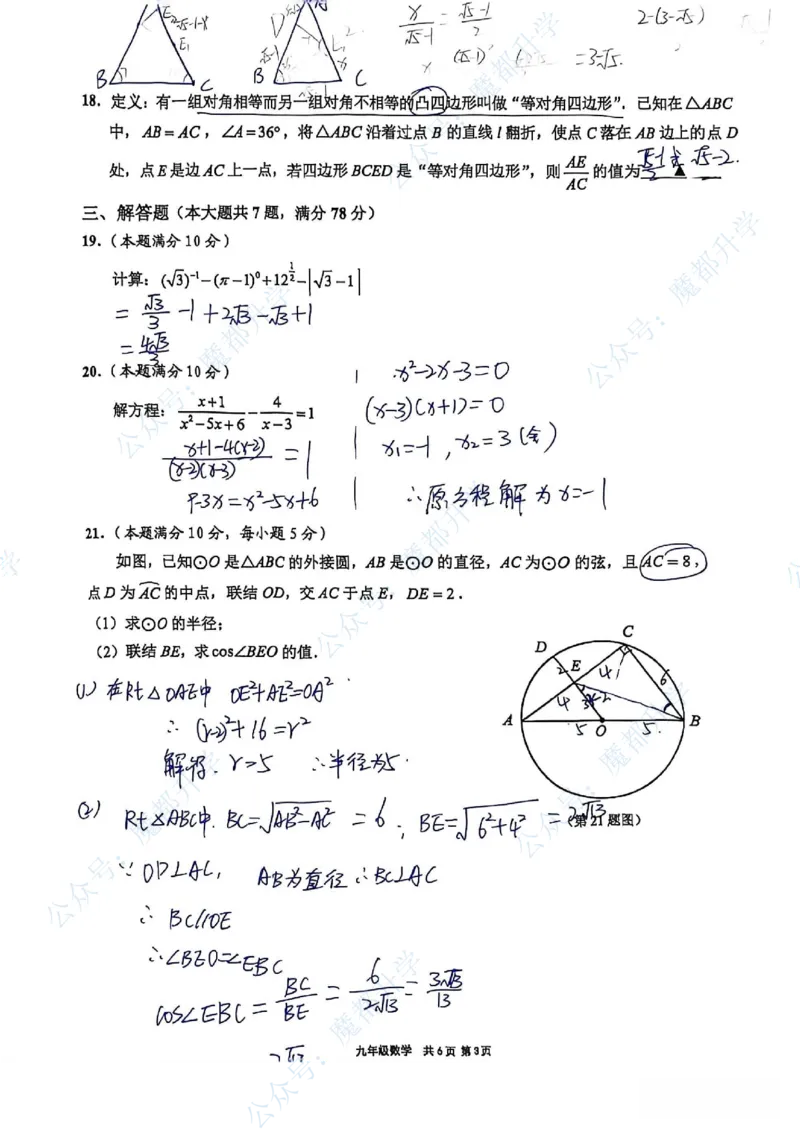 18. 定义：有一组对角相等而另一组对角不相等的凸四边形叫做“等对角四边形”. 已知在△ABC
中，AB=AC，∠A=36°，将△ABC沿着过点 B 的直线 l 翻折，使点 C 落在 AB 边上的点 D
处，点 E 是边 AC 上一点，若四边形 BCED 是“等对角四边形”，则 AE/AC 的值为 ▲ (√5-1)/2 或 √5-2.
三、解答题（本大题共 7 题，满分 78 分）
19.（本题满分 10 分）
计算：(√3)⁻¹-(π-1)⁰+12^(1/2)-|√3-1|
= √3/3 -1+2√3-√3+1
= 4√3/3
20.（本题满分 10 分）
解方程：(x+1)/(x²-5x+6) - 4/(x-3) =1
(x+1-4(x-2))/((x-2)(x-3)) = 1
9-3x=x²-5x+6
x²-2x-3=0
(x-3)(x+1)=0
x₁=-1, x₂=3(舍)
∴原方程解为x=-1
21.（本题满分 10 分，每小题 5 分）
如图，已知⊙O 是△ABC 的外接圆，AB 是⊙O 的直径，AC 为⊙O 的弦，且 AC=8，
点 D 为 AC 的中点，联结 OD，交 AC 于点 E，DE=2.
（1）求⊙O 的半径；
（2）联结 BE，求 cos∠BEO 的值.
(1) 在Rt△OAE中 OE²+AE²=OA²
∴ (r-2)²+16=r²
解得. r=5 ∴半径为5.
D C E A O B
2 4 4 6 5 5
（第 21 题图）
(2) Rt△ABC中. BC=√(AB²-AC²) =6, BE=√(6²+4²) =2√13
∵OD⊥AC, AB为直径 ∴BC⊥AC
∴ BC//OE
∴∠BEO=∠EBC
cos∠EBC= BC/BE = 6/(2√13) = 3√13/13
九年级数学 共 6 页 第 3 页
公众号：魔都升学